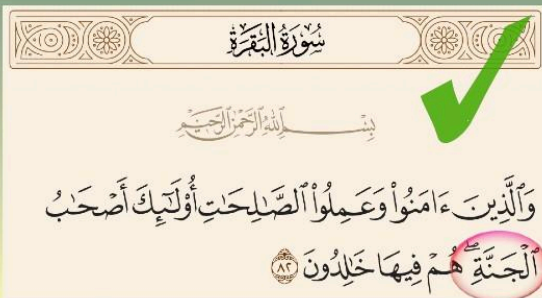 سُورَةُ البَقَرَةِ
بِسْمِ ٱللَّهِ ٱلرَّحْمَٰنِ ٱلرَّحِيمِ
وَٱلَّذِينَ ءَامَنُوا۟ وَعَمِلُوا۟ ٱلصَّـٰلِحَـٰتِ أُو۟لَـٰٓئِكَ أَصْحَـٰبُ
ٱلْجَنَّةِ ۖ هُمْ فِيهَا خَـٰلِدُونَ ٨٢